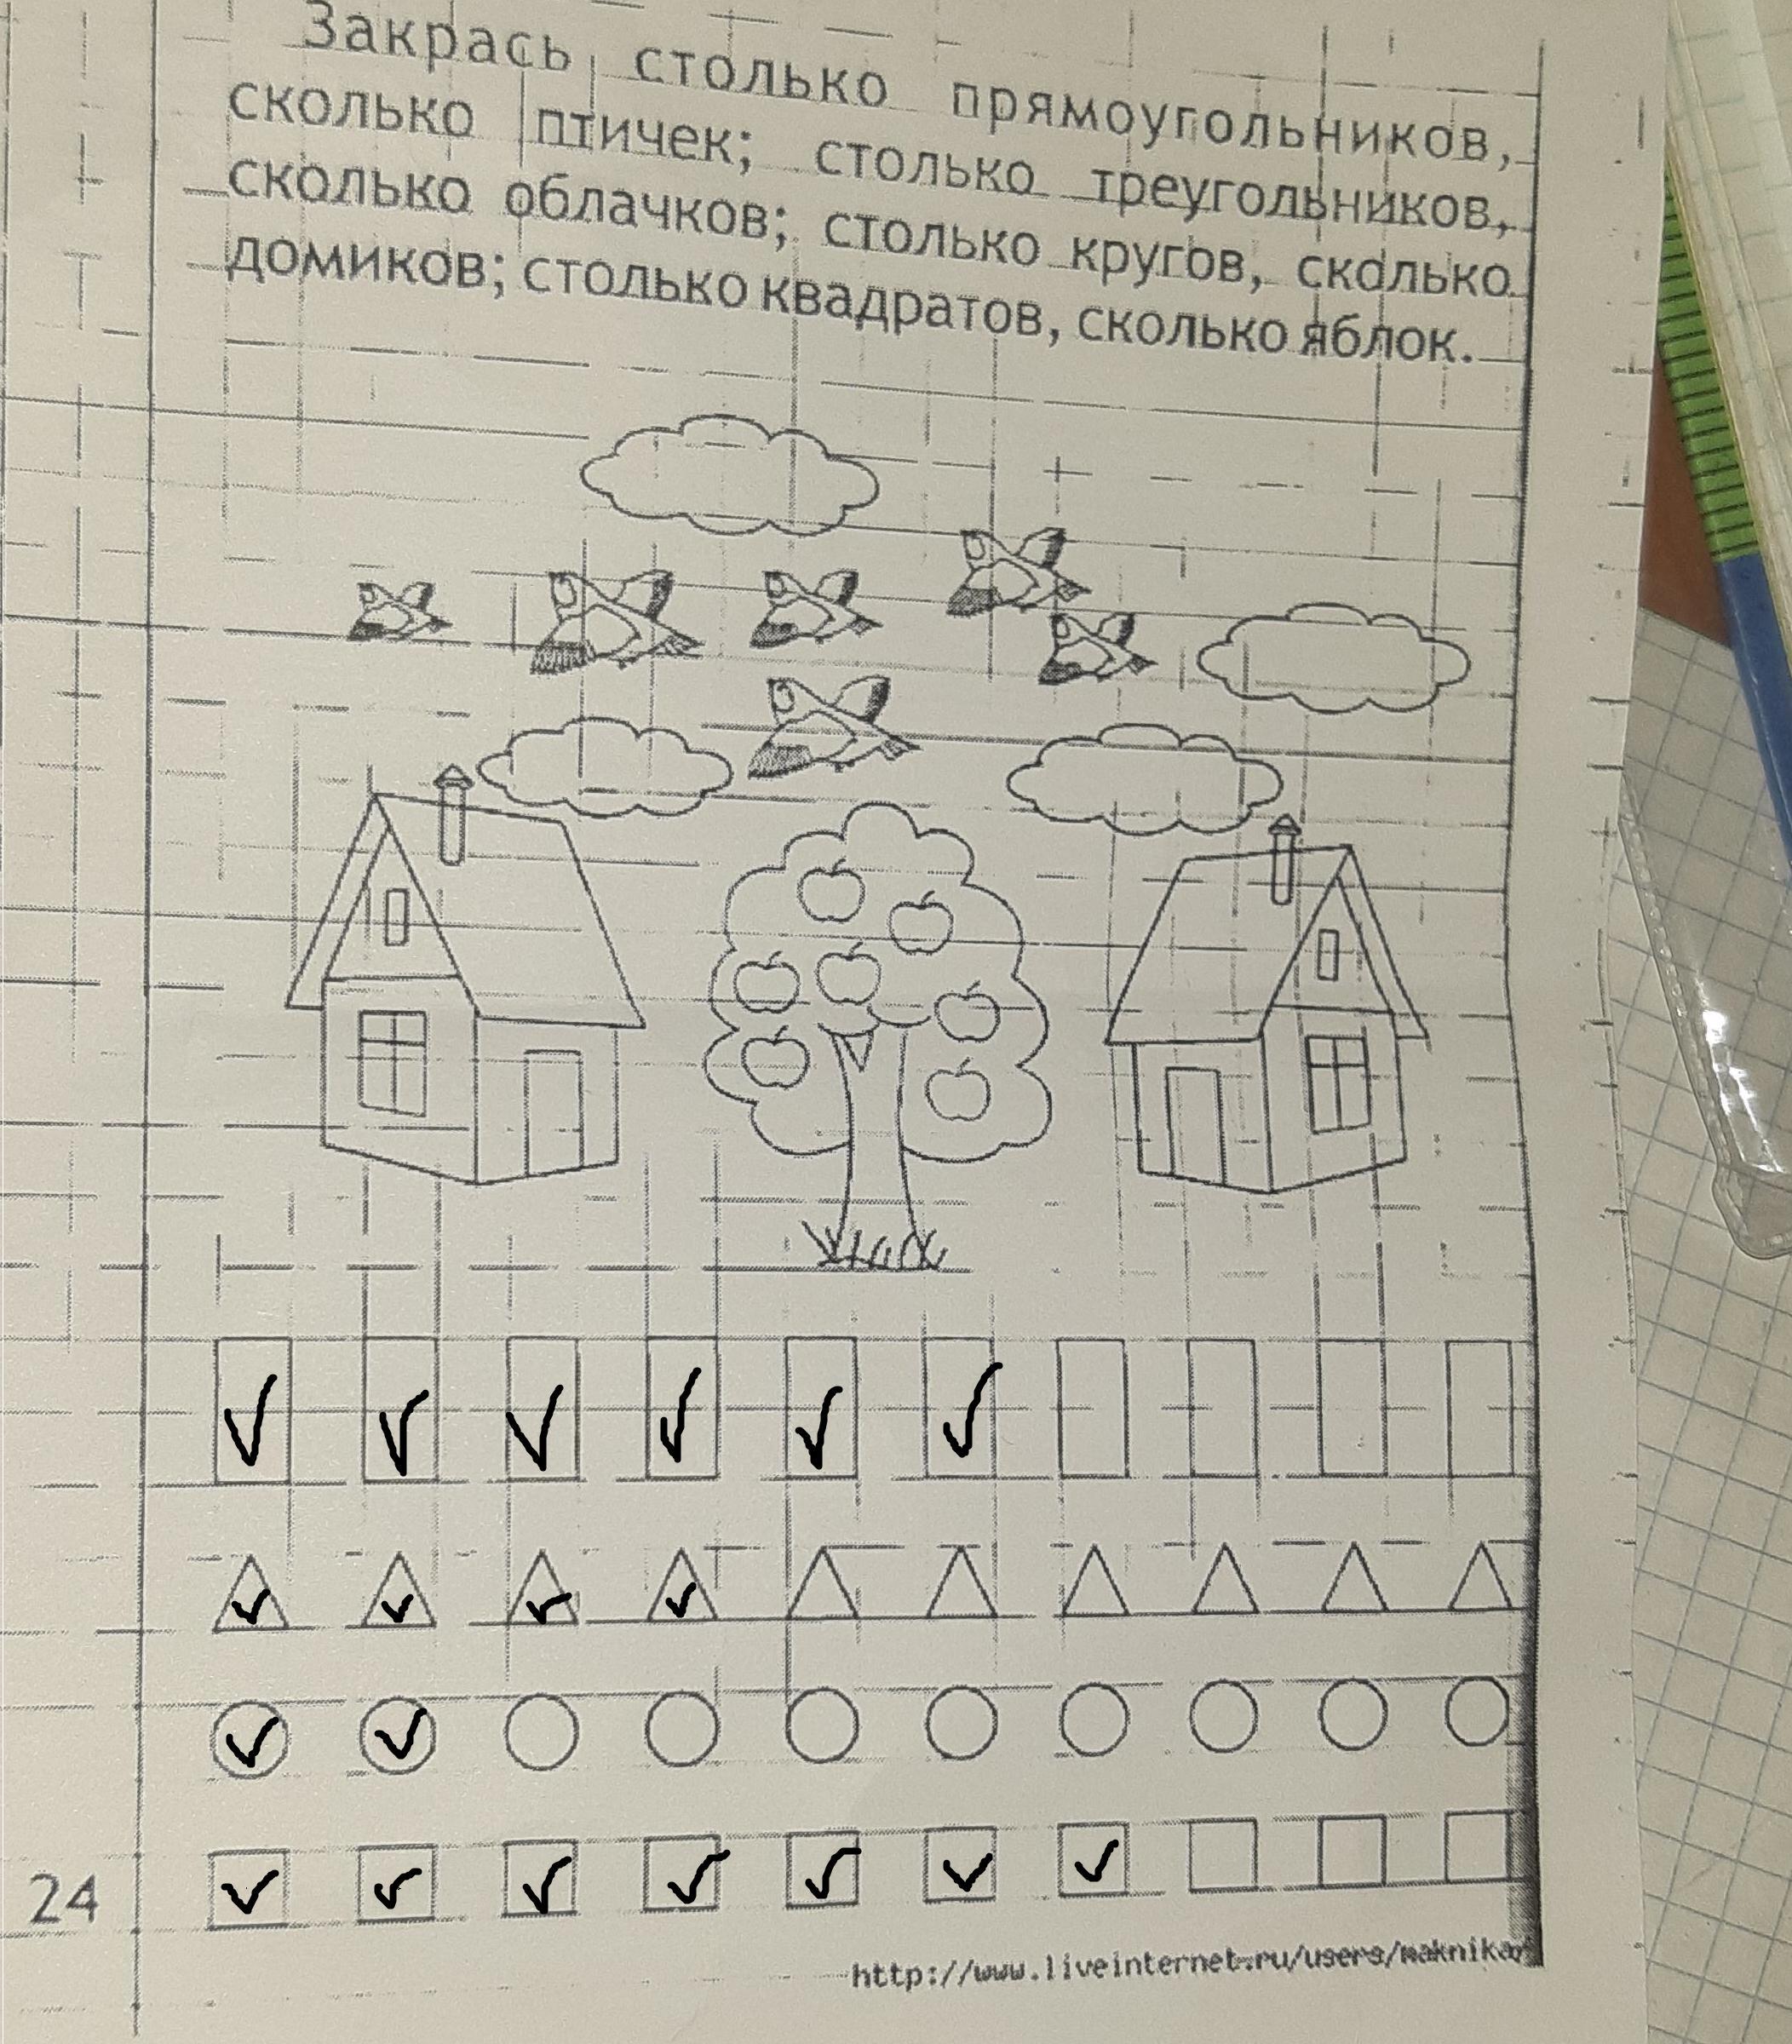 Закрась столько прямоугольников,
сколько птичек; столько треугольников,
сколько облачков; столько кругов, сколько
домиков; столько квадратов, сколько яблок.
24
http://www.liveinternet.ru/users/maknika/